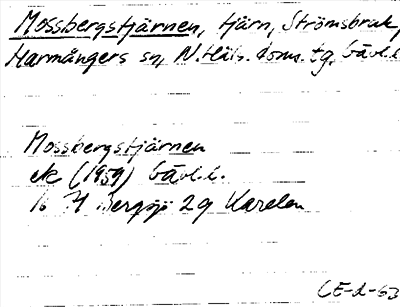 Mossbergstjärnen, tjärn, Strömsbruk,
Harmångers sn, N. Häls. doms. tg, Gävl.l.
Mossbergstjärnen
ek (1959) Gävl.l.
16 H Bergsjö 2g Karelen
CE-d-63